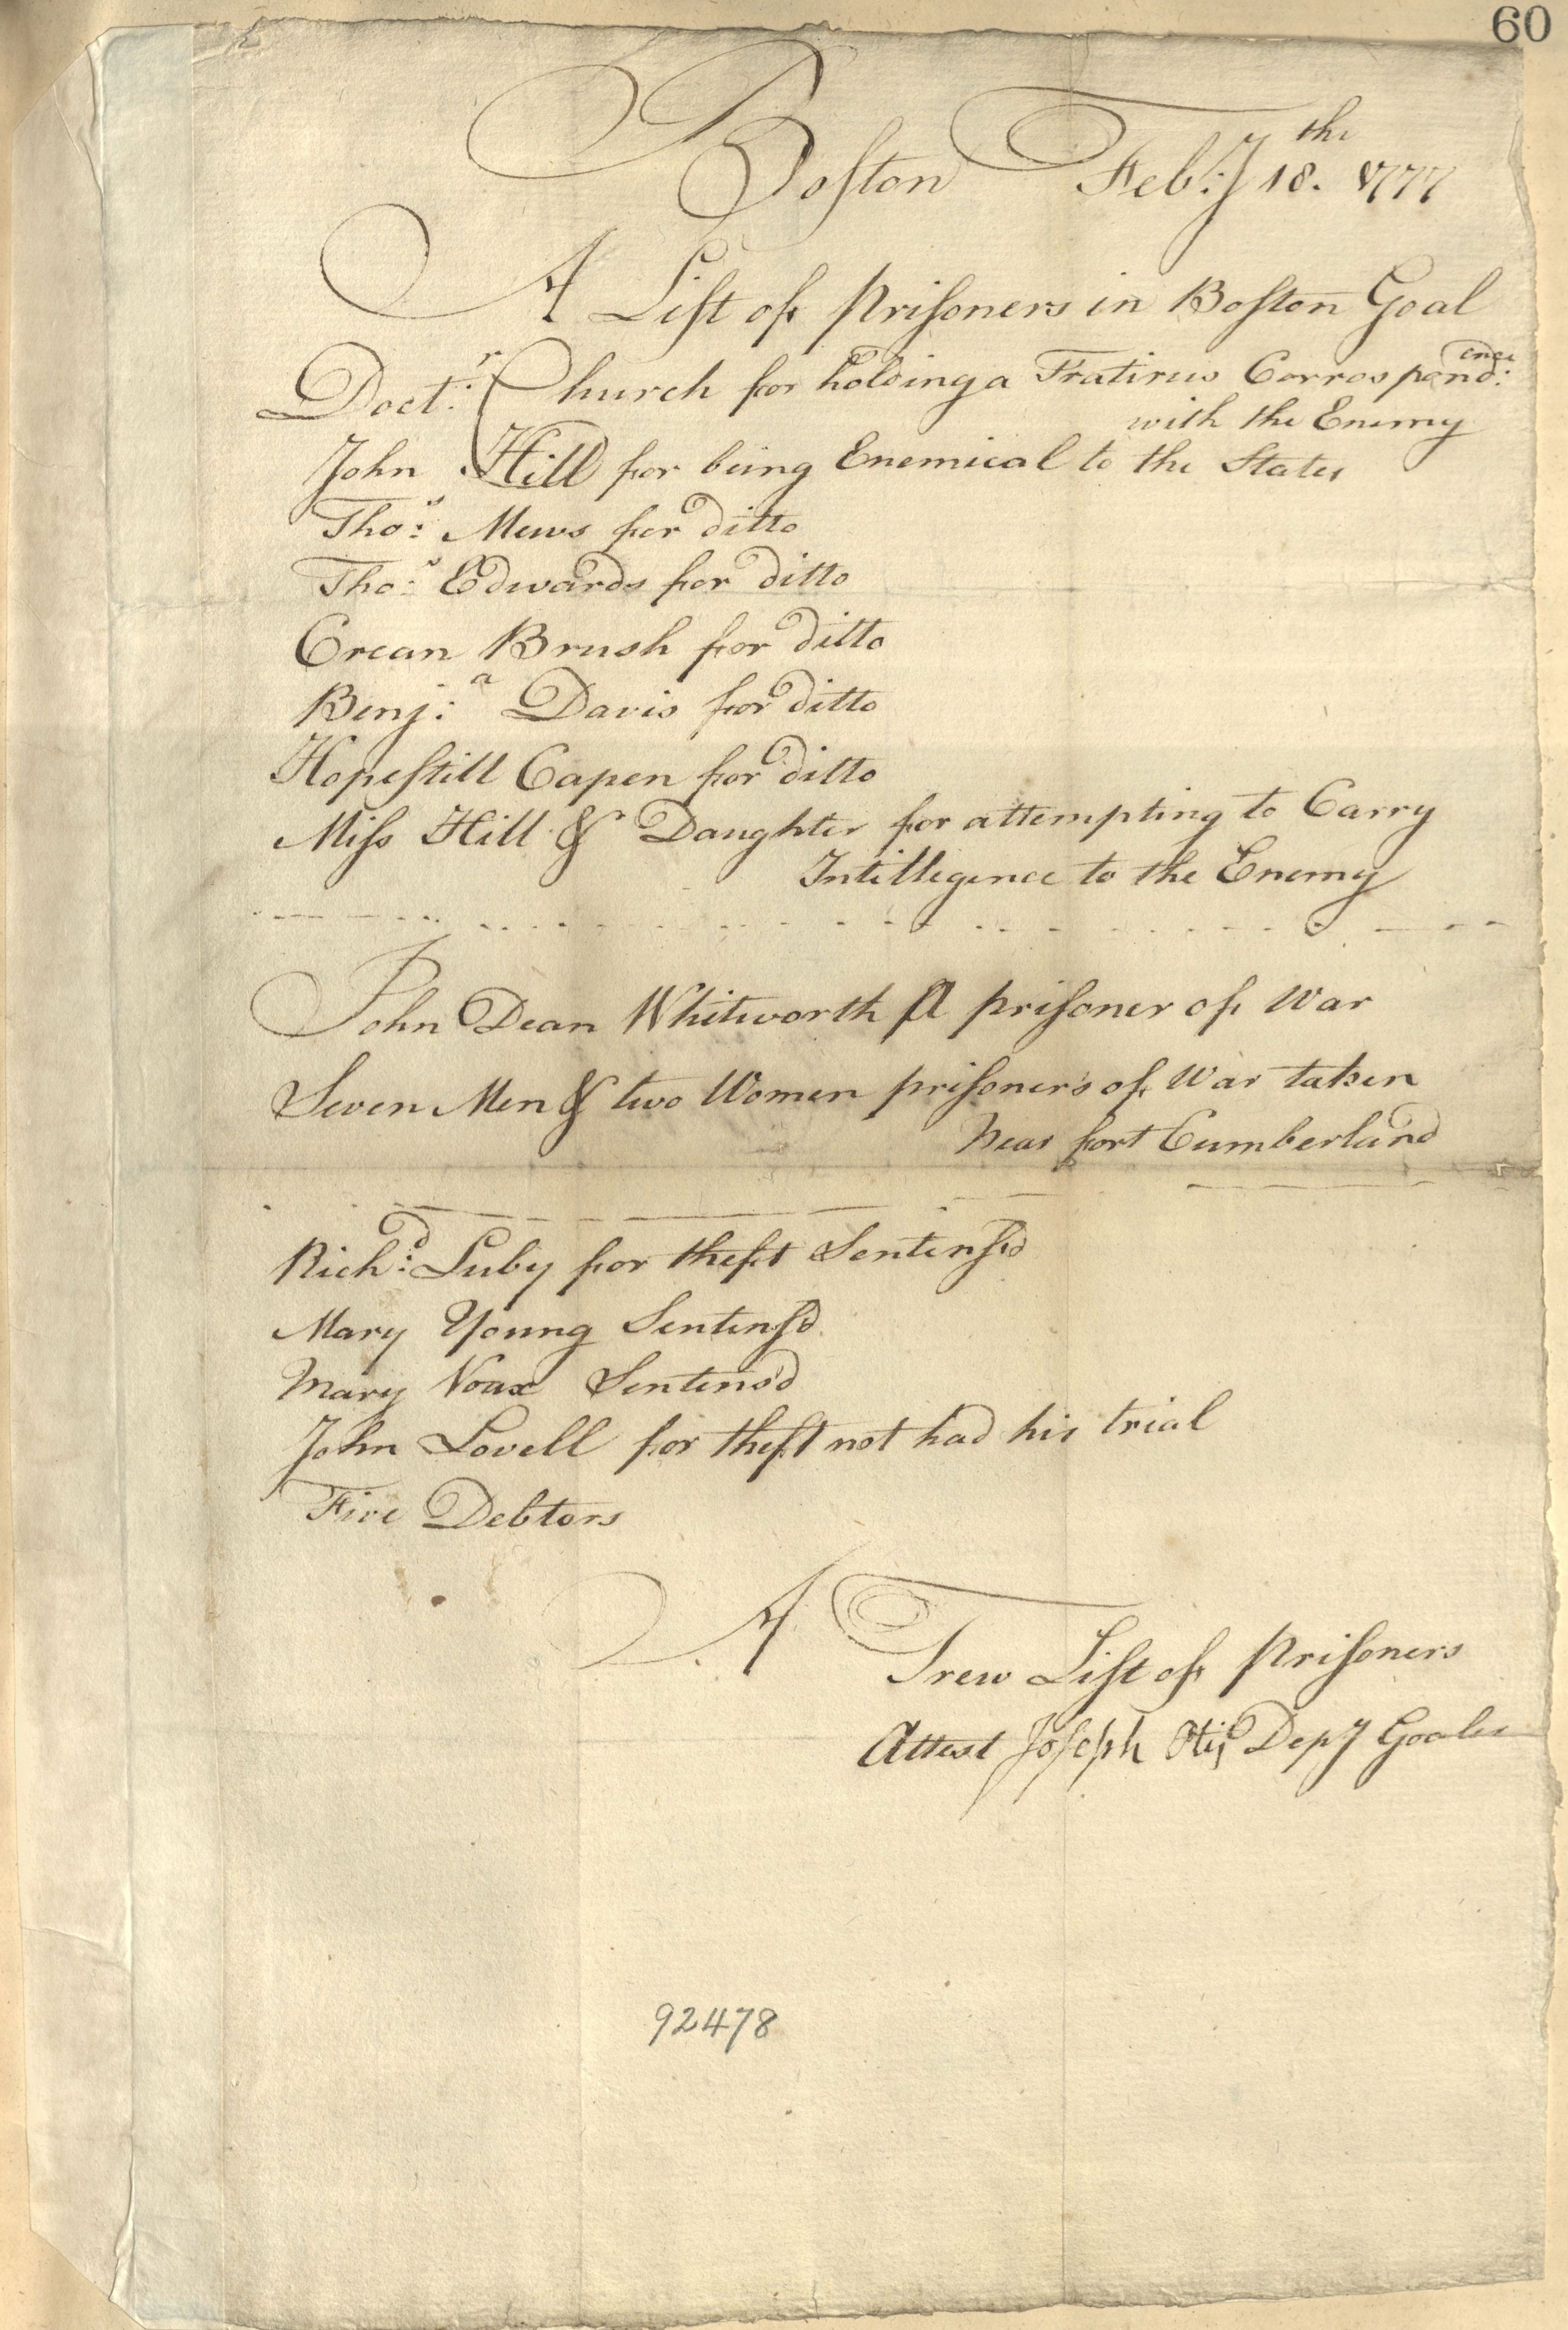 60
Boston Feb:y 18.th 1777
A List of Prisoners in Boston Goal
Doct:r Church for holding a Tratirus Corrospond:ence
with the Enemy
John Hill for being Enemical to the States
Tho:s Mews for ditto
Tho:s Edwards for ditto
Crean Brush for ditto
Benj:a Davis for ditto
Hopestill Capen for ditto
Miss Hill & Daughter for attempting to Carry
Intilligence to the Enemy
John Dean Whitworth A prisoner of War
Seven Men & two Women prisoners of War taken
Near fort Cumberland
Rich:d Luby for theft Sentensd
Mary Young Sentensd
Mary Voax Sentens'd
John Lovell for theft not had his trial
Five Debtors
A Trew List of Prisoners
Attest Joseph Otis Depy Goaler
92478